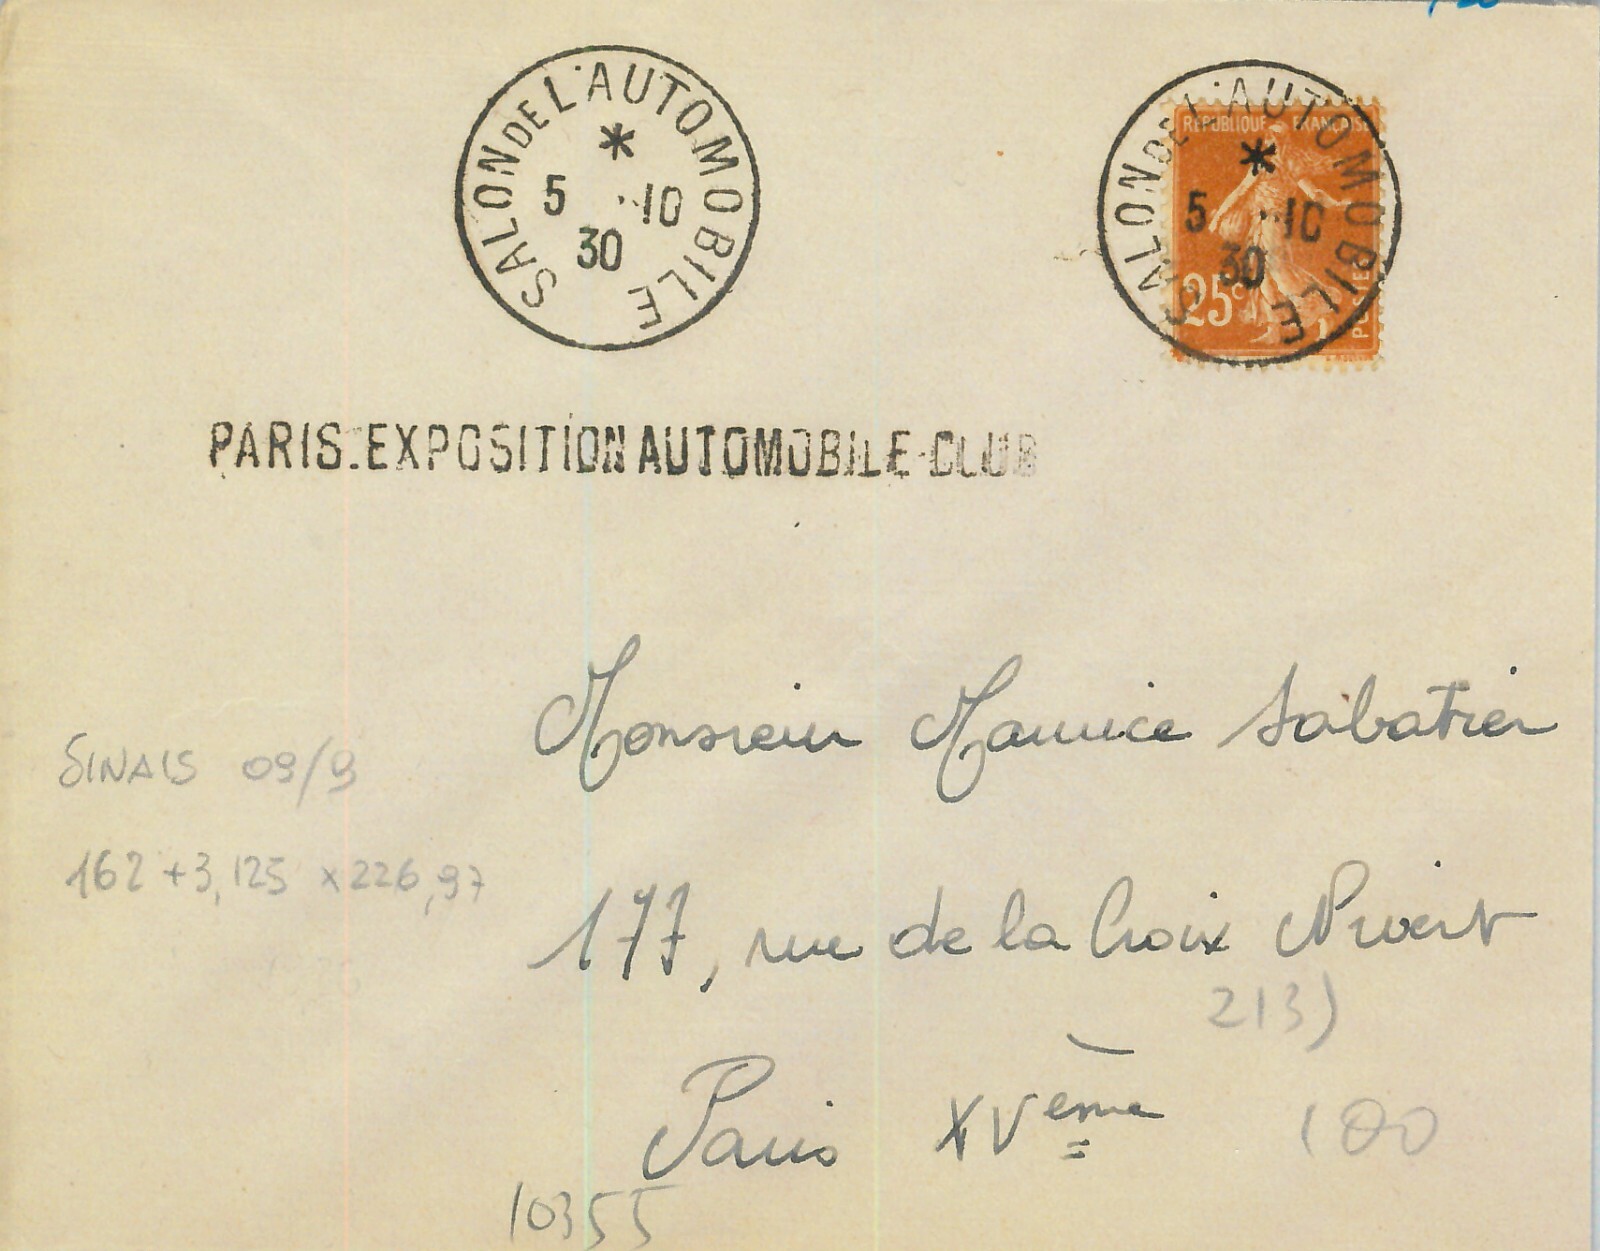 SALON DE L'AUTOMOBILE
*
5 ·10
30
SALON DE L'AUTOMOBILE
*
5 ·10
30
REPUBLIQUE FRANÇAISE
25c
POSTES
PARIS.EXPOSITION AUTOMOBILE-CLUB
Monsieur Maurice Sabatier
SINAIS 09/9
162 + 3,125 x 226,97
177, rue de la Croix Nivert
213)
Paris XVème
100
10355